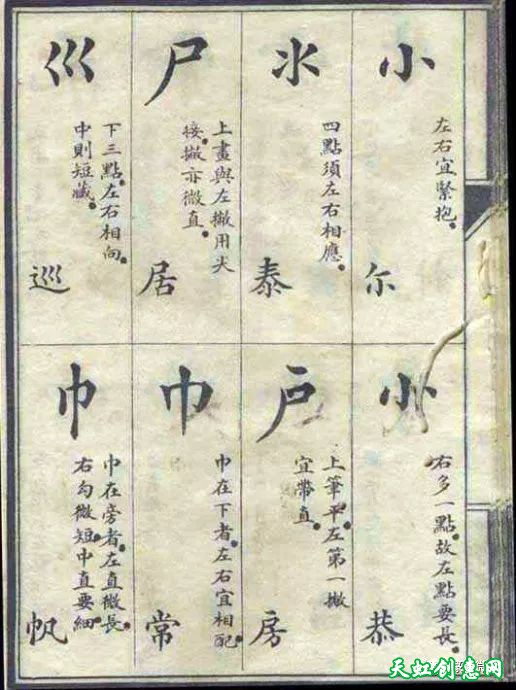 小
左右宜緊抱。
尔
氺
四點須左右相應。
泰
尸
上畫與左撇用尖
接。撇亦微直。
居
巛
下三點。左右相向。
中則短藏。
巡
㣺
右多一點。故左點要長。
恭
戶
上筆平。左第一撇
宜帶直。
房
巾
巾在下者。左右宜相配。
常
巾
巾在旁者。左直微長。
右勾微短。中直要細。
帆
天虹创意网